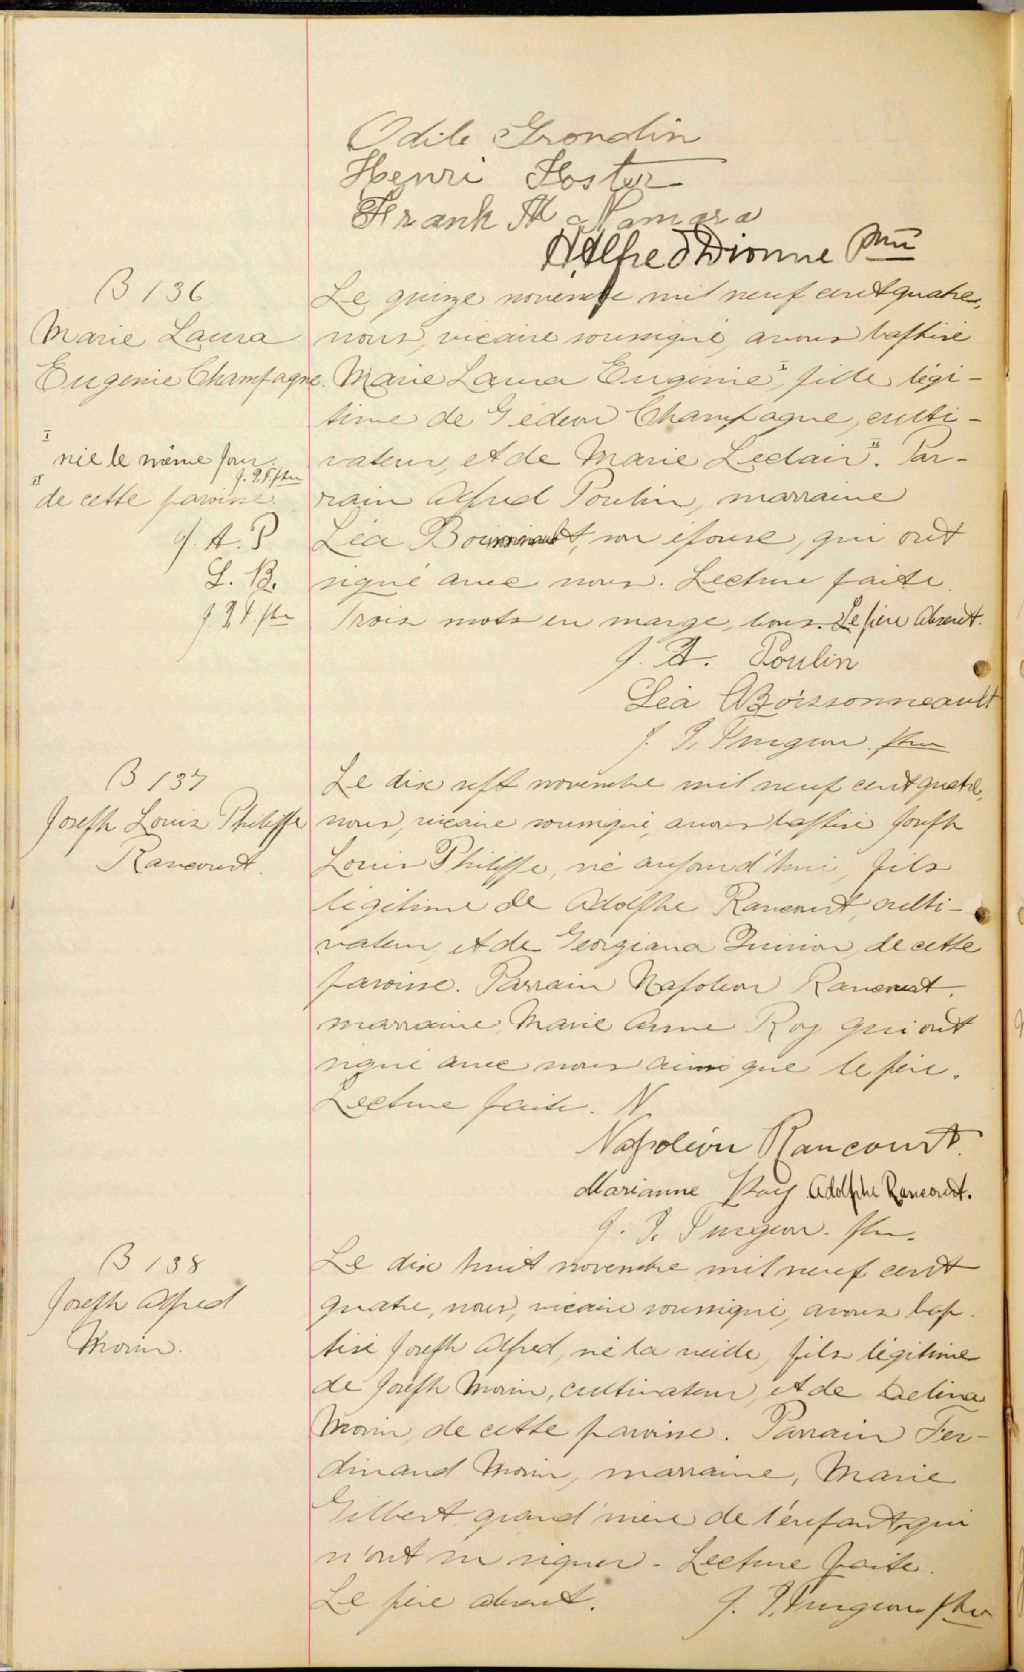 Odile Grondin
Henri Foster
Frank Mc Namara
Alfred Dionne Ptre
B 136
Marie Laura
Eugenie Champagne.
I
née le même jour.
J. P. T. ptre
II
de cette paroisse
J. A. P
L. B.
J. P. T. ptre
Le quinze novembre mil neuf cent quatre,
nous, vicaire soussigné, avons baptisé
Marie Laura Eugénie I, fille légi-
time de Gédéon Champagne, culti-
vateur, et de Marie Leclair II. Par-
rain Alfred Poulin, marraine
Léa, son épouse, qui ont
signé avec nous. Lecture faite.
Trois mots en marge, bons. Le père absent.
J. A. Poulin
Léa Boissonneault
J. P. Turgeon. ptre
B 137
Joseph Louis Philippe
Rancourt.
Le dix sept novembre mil neuf cent quatre,
nous, vicaire soussigné, avons baptisé Joseph
Louis Philippe, né aujourd'hui, fils
légitime de Adolphe Rancourt, culti-
vateur, et de Georgiana Quirion, de cette
paroisse. Parrain Napoléon Rancourt.
marraine, Marie Anne Roy qui ont
signé avec nous ainsi que le père.
Lecture faite. N
Napoléon Rancourt.
Marianne Roy Adolphe Rancourt.
J. P. Turgeon. ptre.
B 138
Joseph Alfred
Morin.
Le dix huit novembre mil neuf cent
quatre, nous, vicaire soussigné, avons bap-
tisé Joseph Alfred, né la veille, fils légitime
de Joseph Morin, cultivateur, et de
Morin, de cette paroisse. Parrain Fer-
dinand Morin, marraine, Marie
Gilbert grand'mère de l'enfant, qui
n'ont su signer - Lecture faite.
Le père absent. J. P. Turgeon ptre